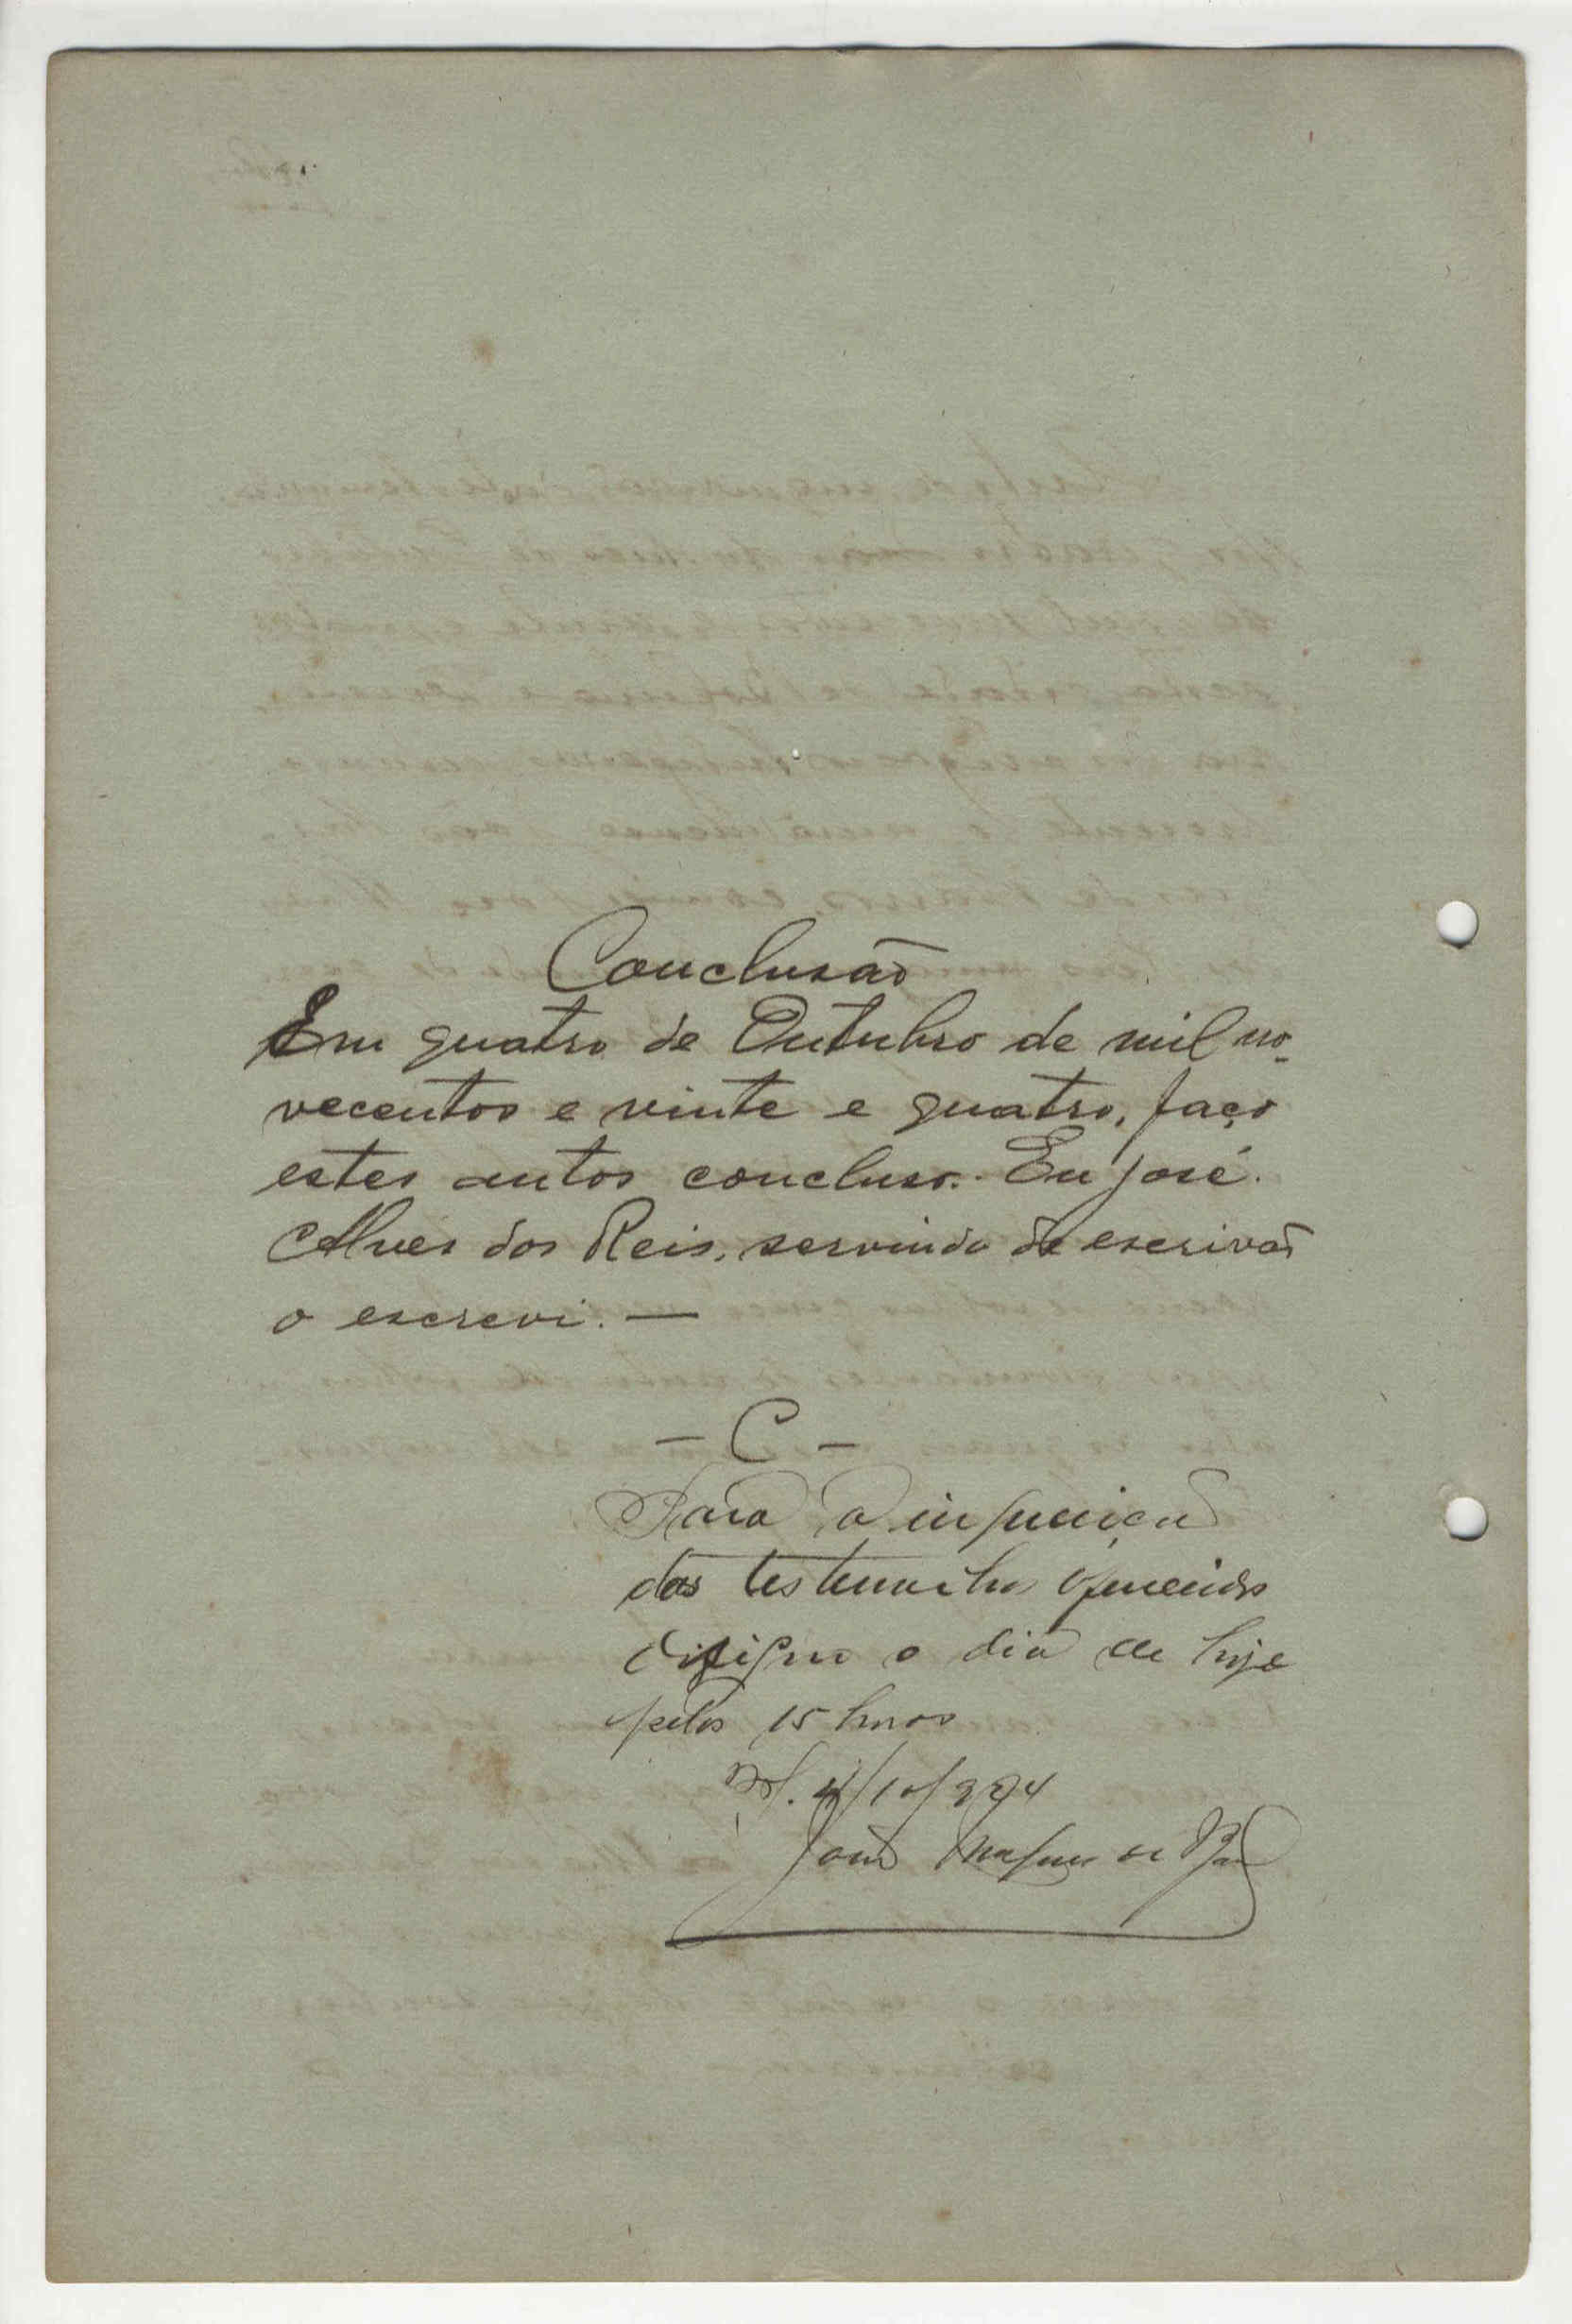 Conclusão
Em quatro de Outubro de mil no-
vecentos e vinte e quatro, faço
estes autos concluso. Eu José
Alves dos Reis, servindo de escrivão
o escrevi. —
— C —
Para a inquirição
das testemunhas oferecidas
designo o dia de hoje
pelas 15 horas
4/10/924
João de